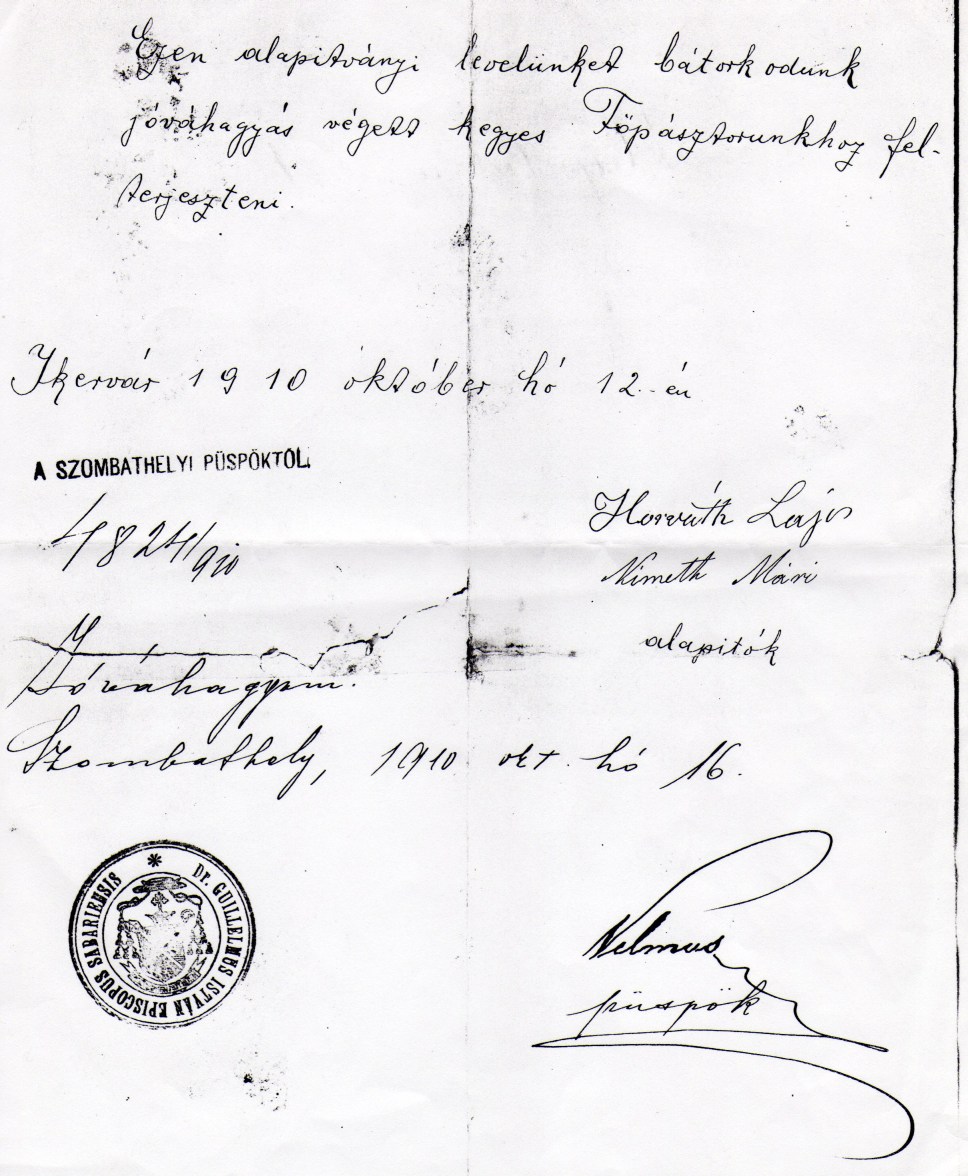 Ezen alapitványi levelünket bátorkodunk
jóváhagyás végett kegyes Főpásztorunkhoz fel-
terjeszteni.
Ikervár 1910 október hó 12.-én
A SZOMBATHELYI PÜSPÖKTŐL.
4824/910
Horváth Lajos
Németh Mári
alapitók
Jóváhagyom.
Szombathely, 1910 okt. hó 16.
Dr. GUILLELMUS ISTVÁN EPISCOPUS SABARIENSIS
püspök